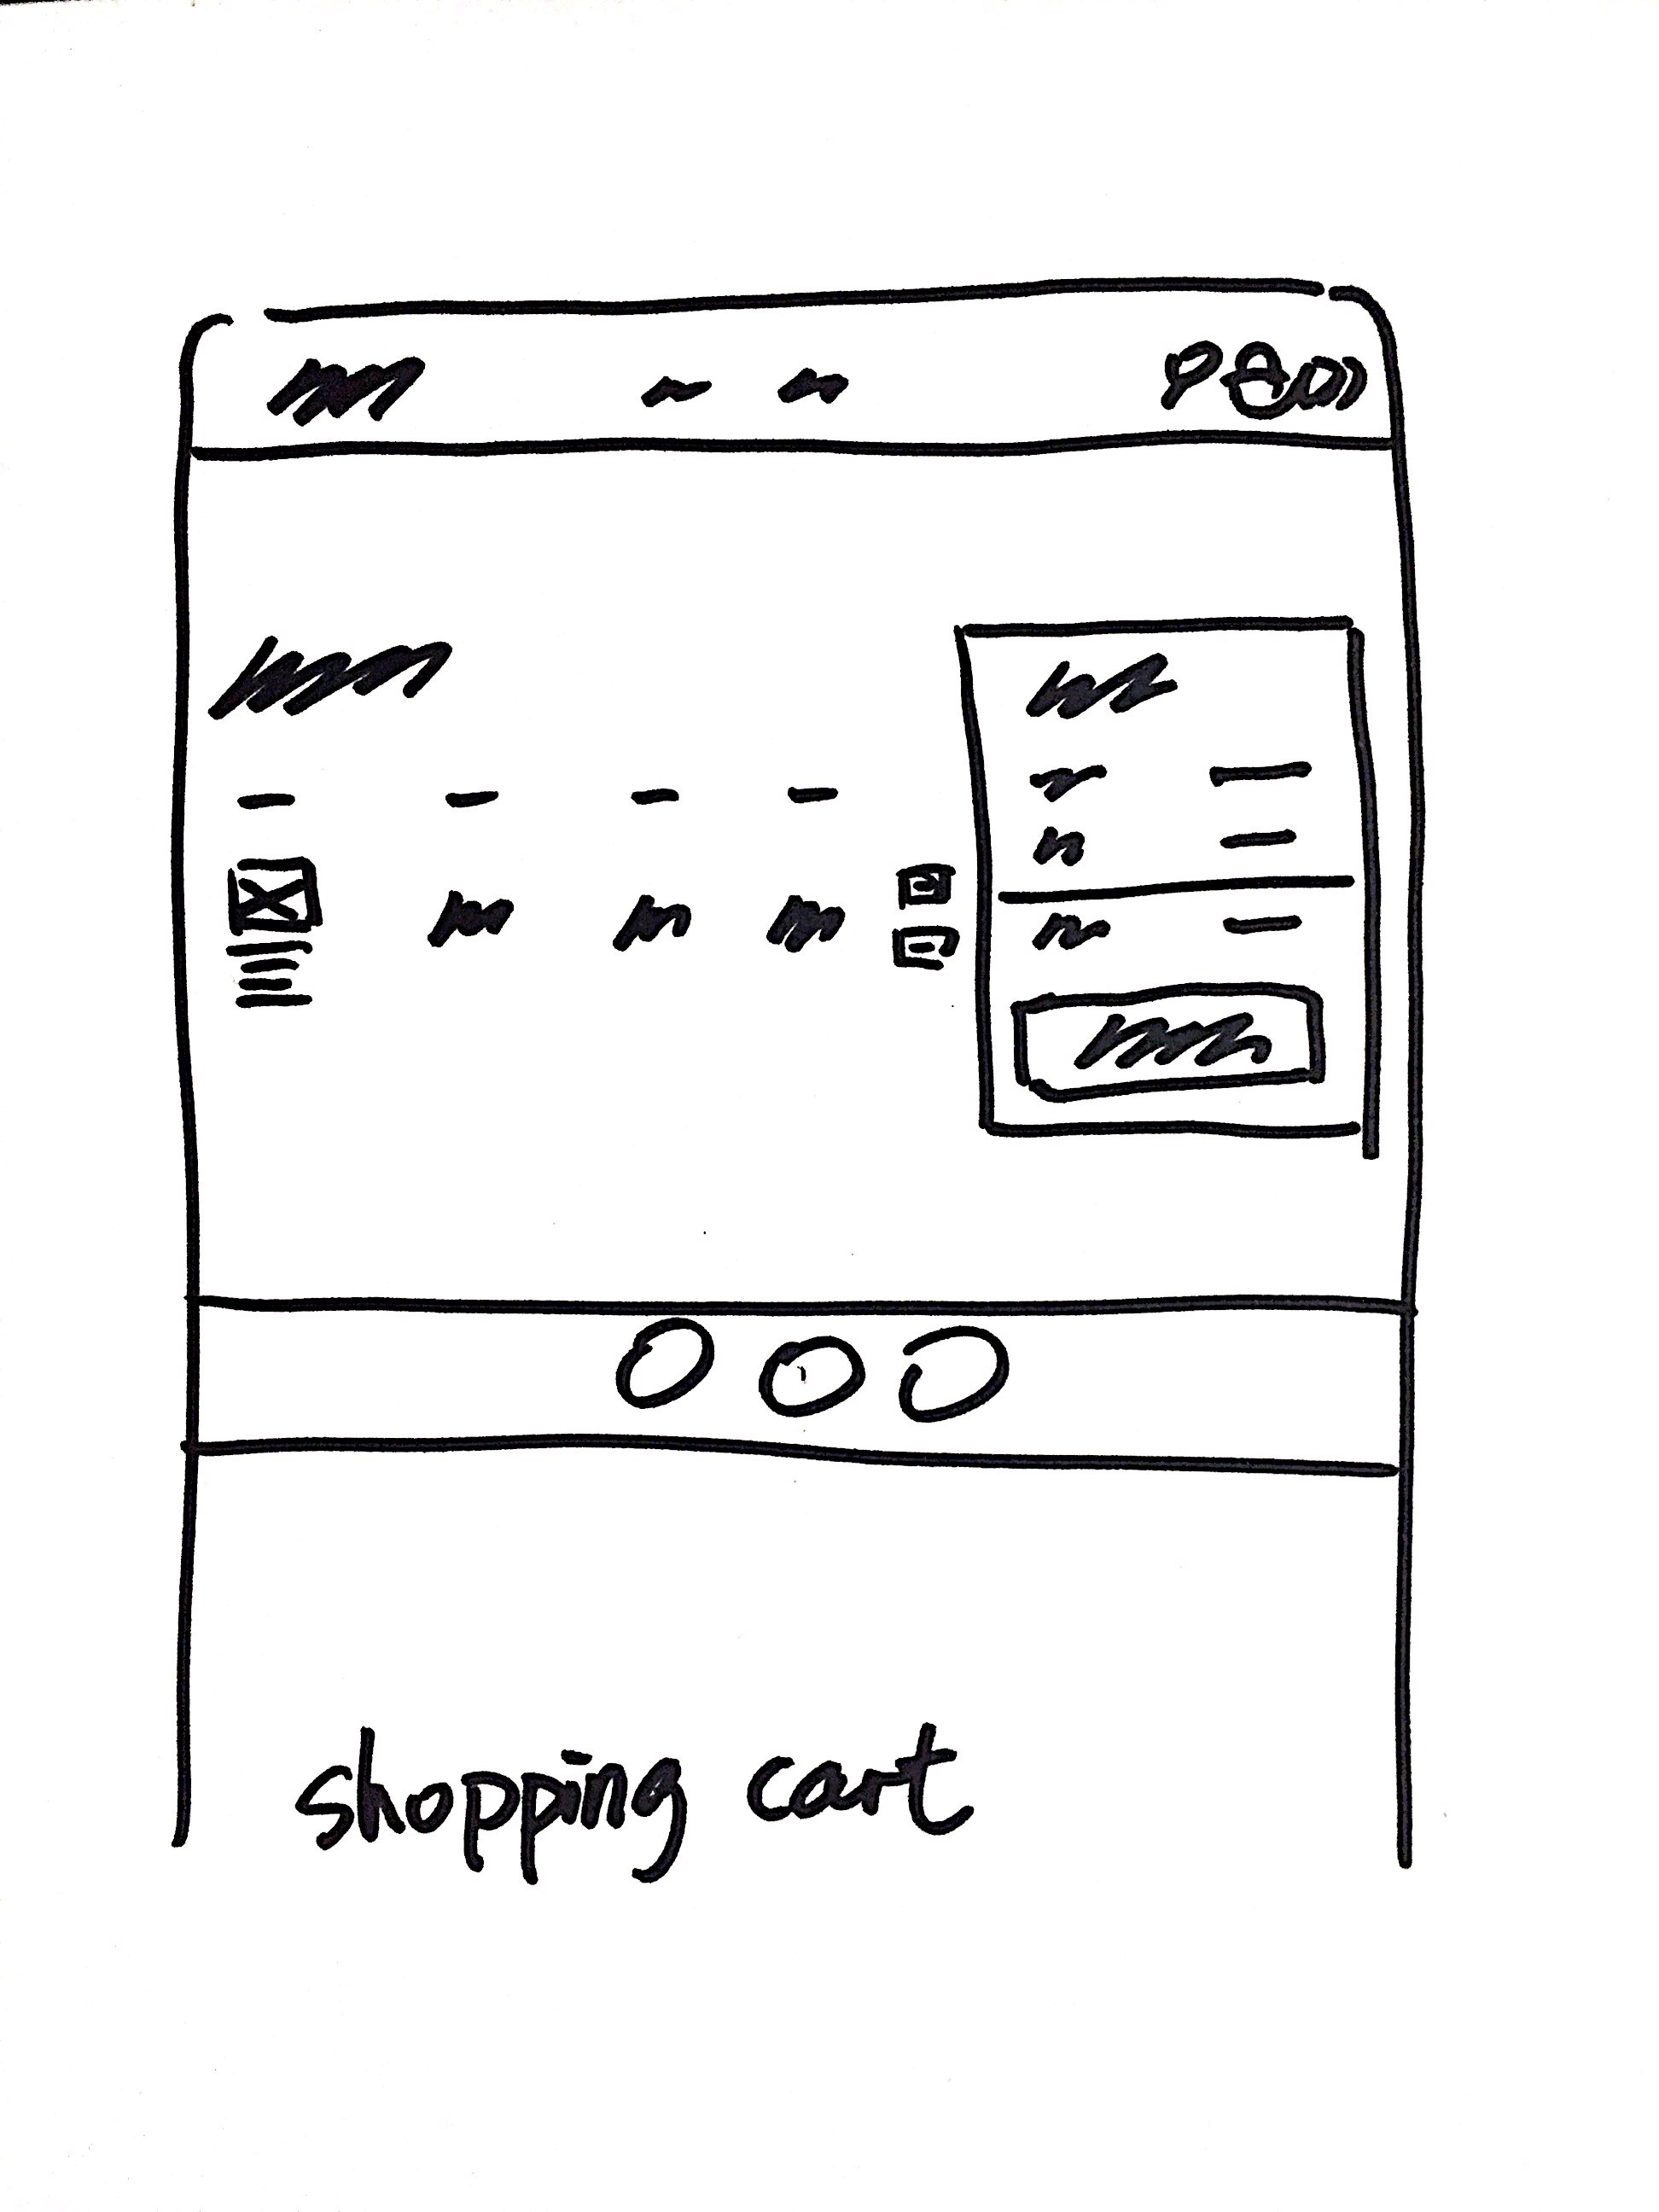 shopping cart